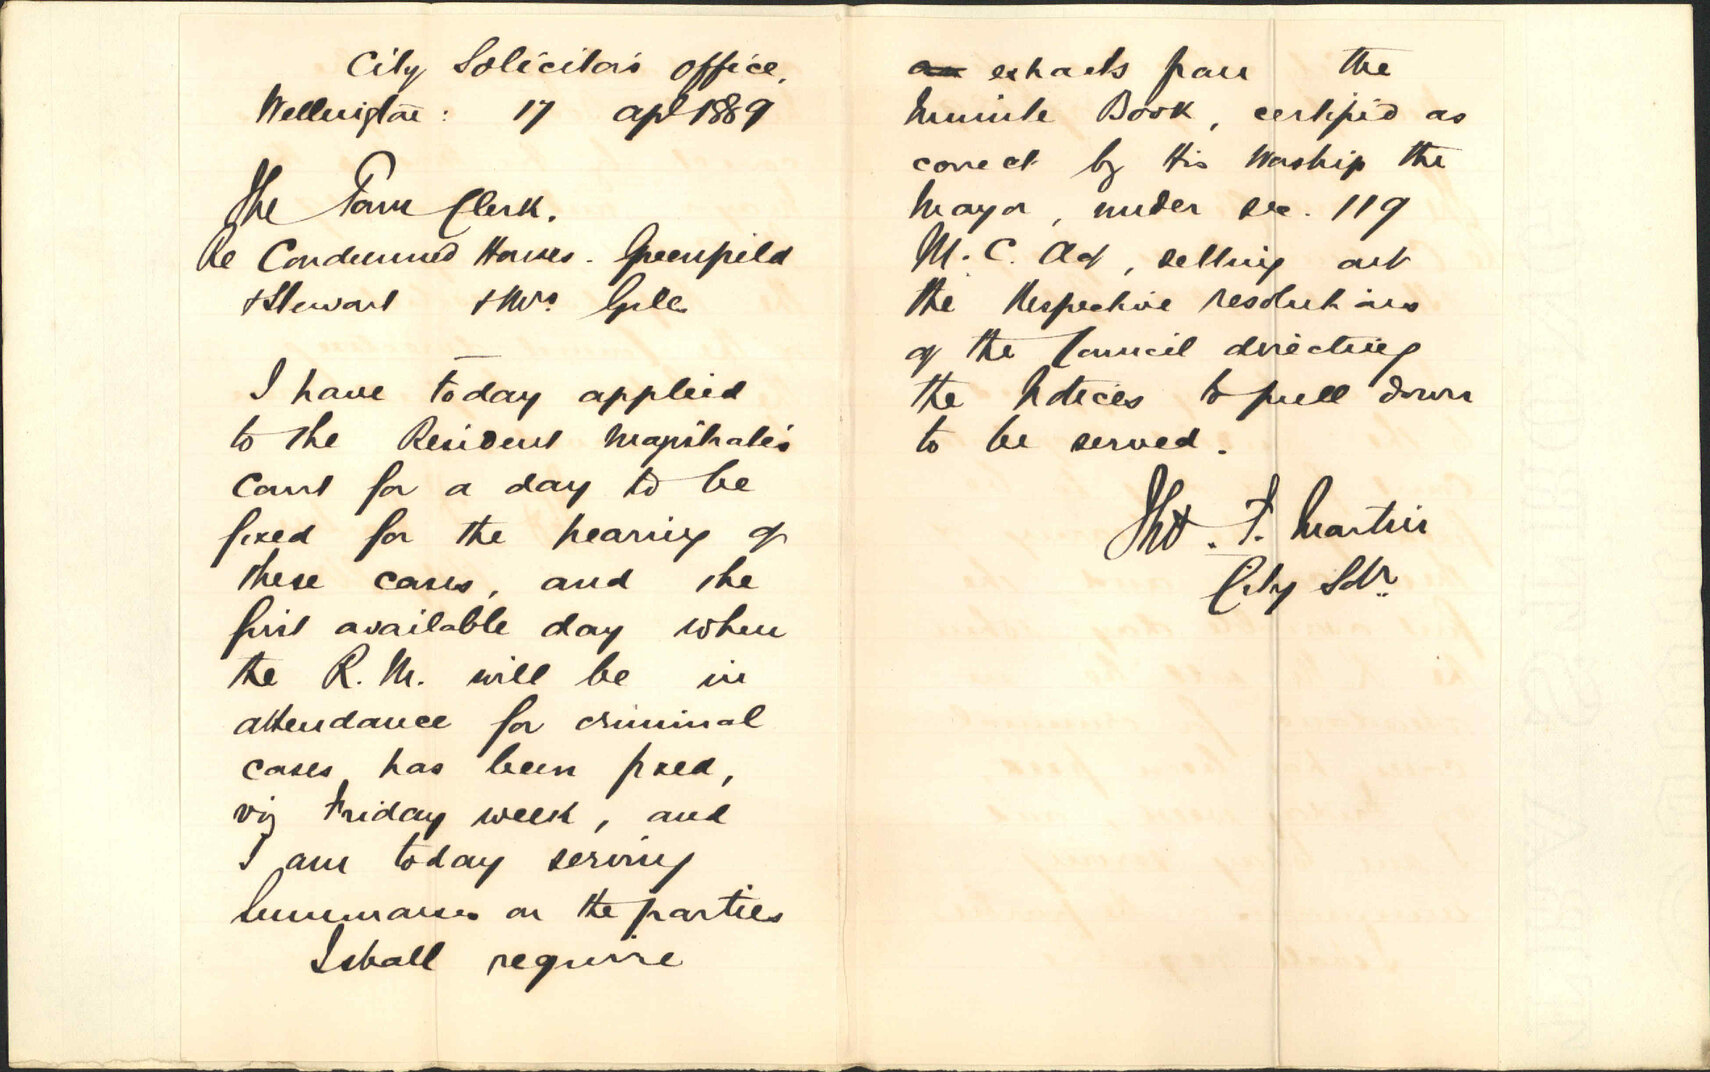 City Solicitors office,
Wellington: 17 apl 1889
The Town Clerk.
Re Condemned Houses. Greenfield
& Stewart & Mrs. Gill
I have today applied
to the Resident Magistrate's
Court for a day to be
fixed for the hearing of
these cases, and the
first available day when
the R. M. will be in
attendance for criminal
cases, has been fixed,
viz Friday week, and
I am today serving
Summonses on the parties
I shall require
an extracts from the
Minute Book, certified as
correct by His Worship the
Mayor, under sec. 119
M. C. Act, setting out
the Respective resolutions
of the Council directing
the Notices to pull down
to be served.
Tho. F. Martin
City Solr.